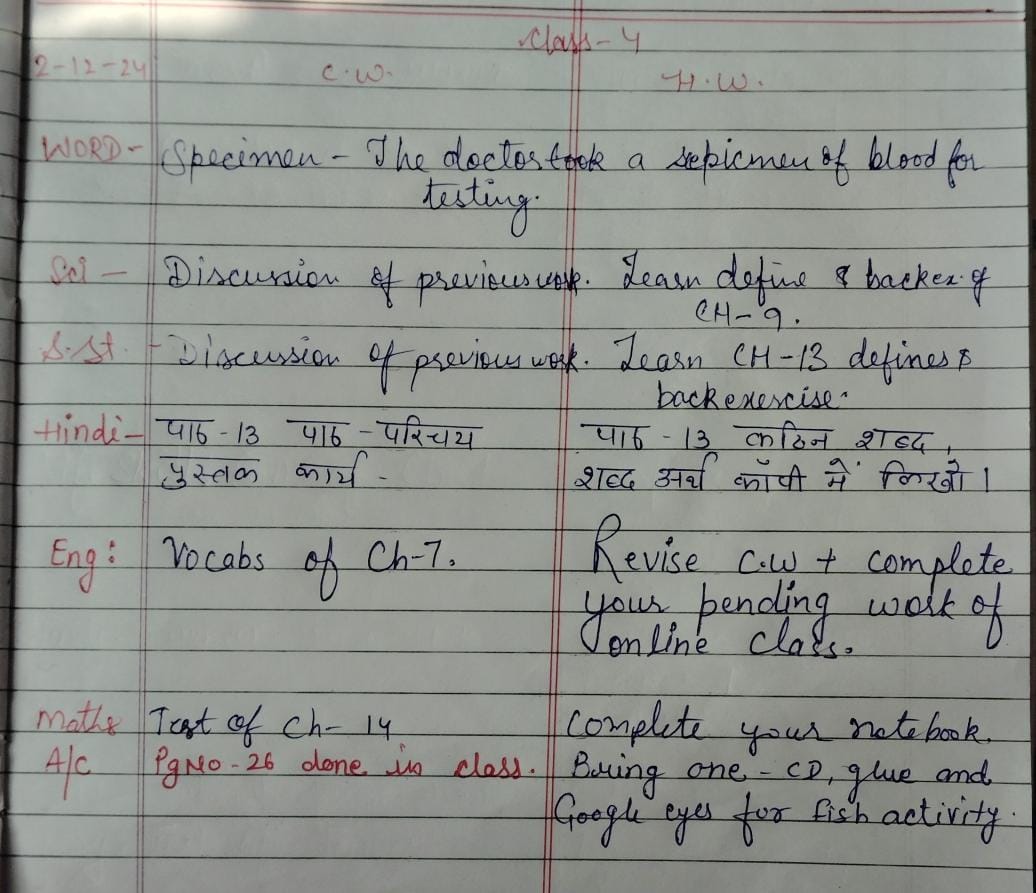 Class-4
2-12-24 C.W. H.W.
WORD- Specimen - The doctor took a sepicmen of blood for
testing.
Sci - Discussion of previous work. Learn define & back ex. of
CH-9.
S.St. - Discussion of previous work. Learn CH-13 defines &
back exercise.
Hindi- पाठ-13 पाठ-परिचय पाठ-13 कठिन शब्द,
पुस्तक कार्य - शब्द अर्थ कॉपी में लिखो।
Eng: Vocabs of Ch-7. Revise C.W + complete
your pending work of
online class.
Maths Test of Ch-14 Complete your notebook.
A/c Pg No-26 done in class. Bring one-CD, glue and
Google eyes for fish activity.